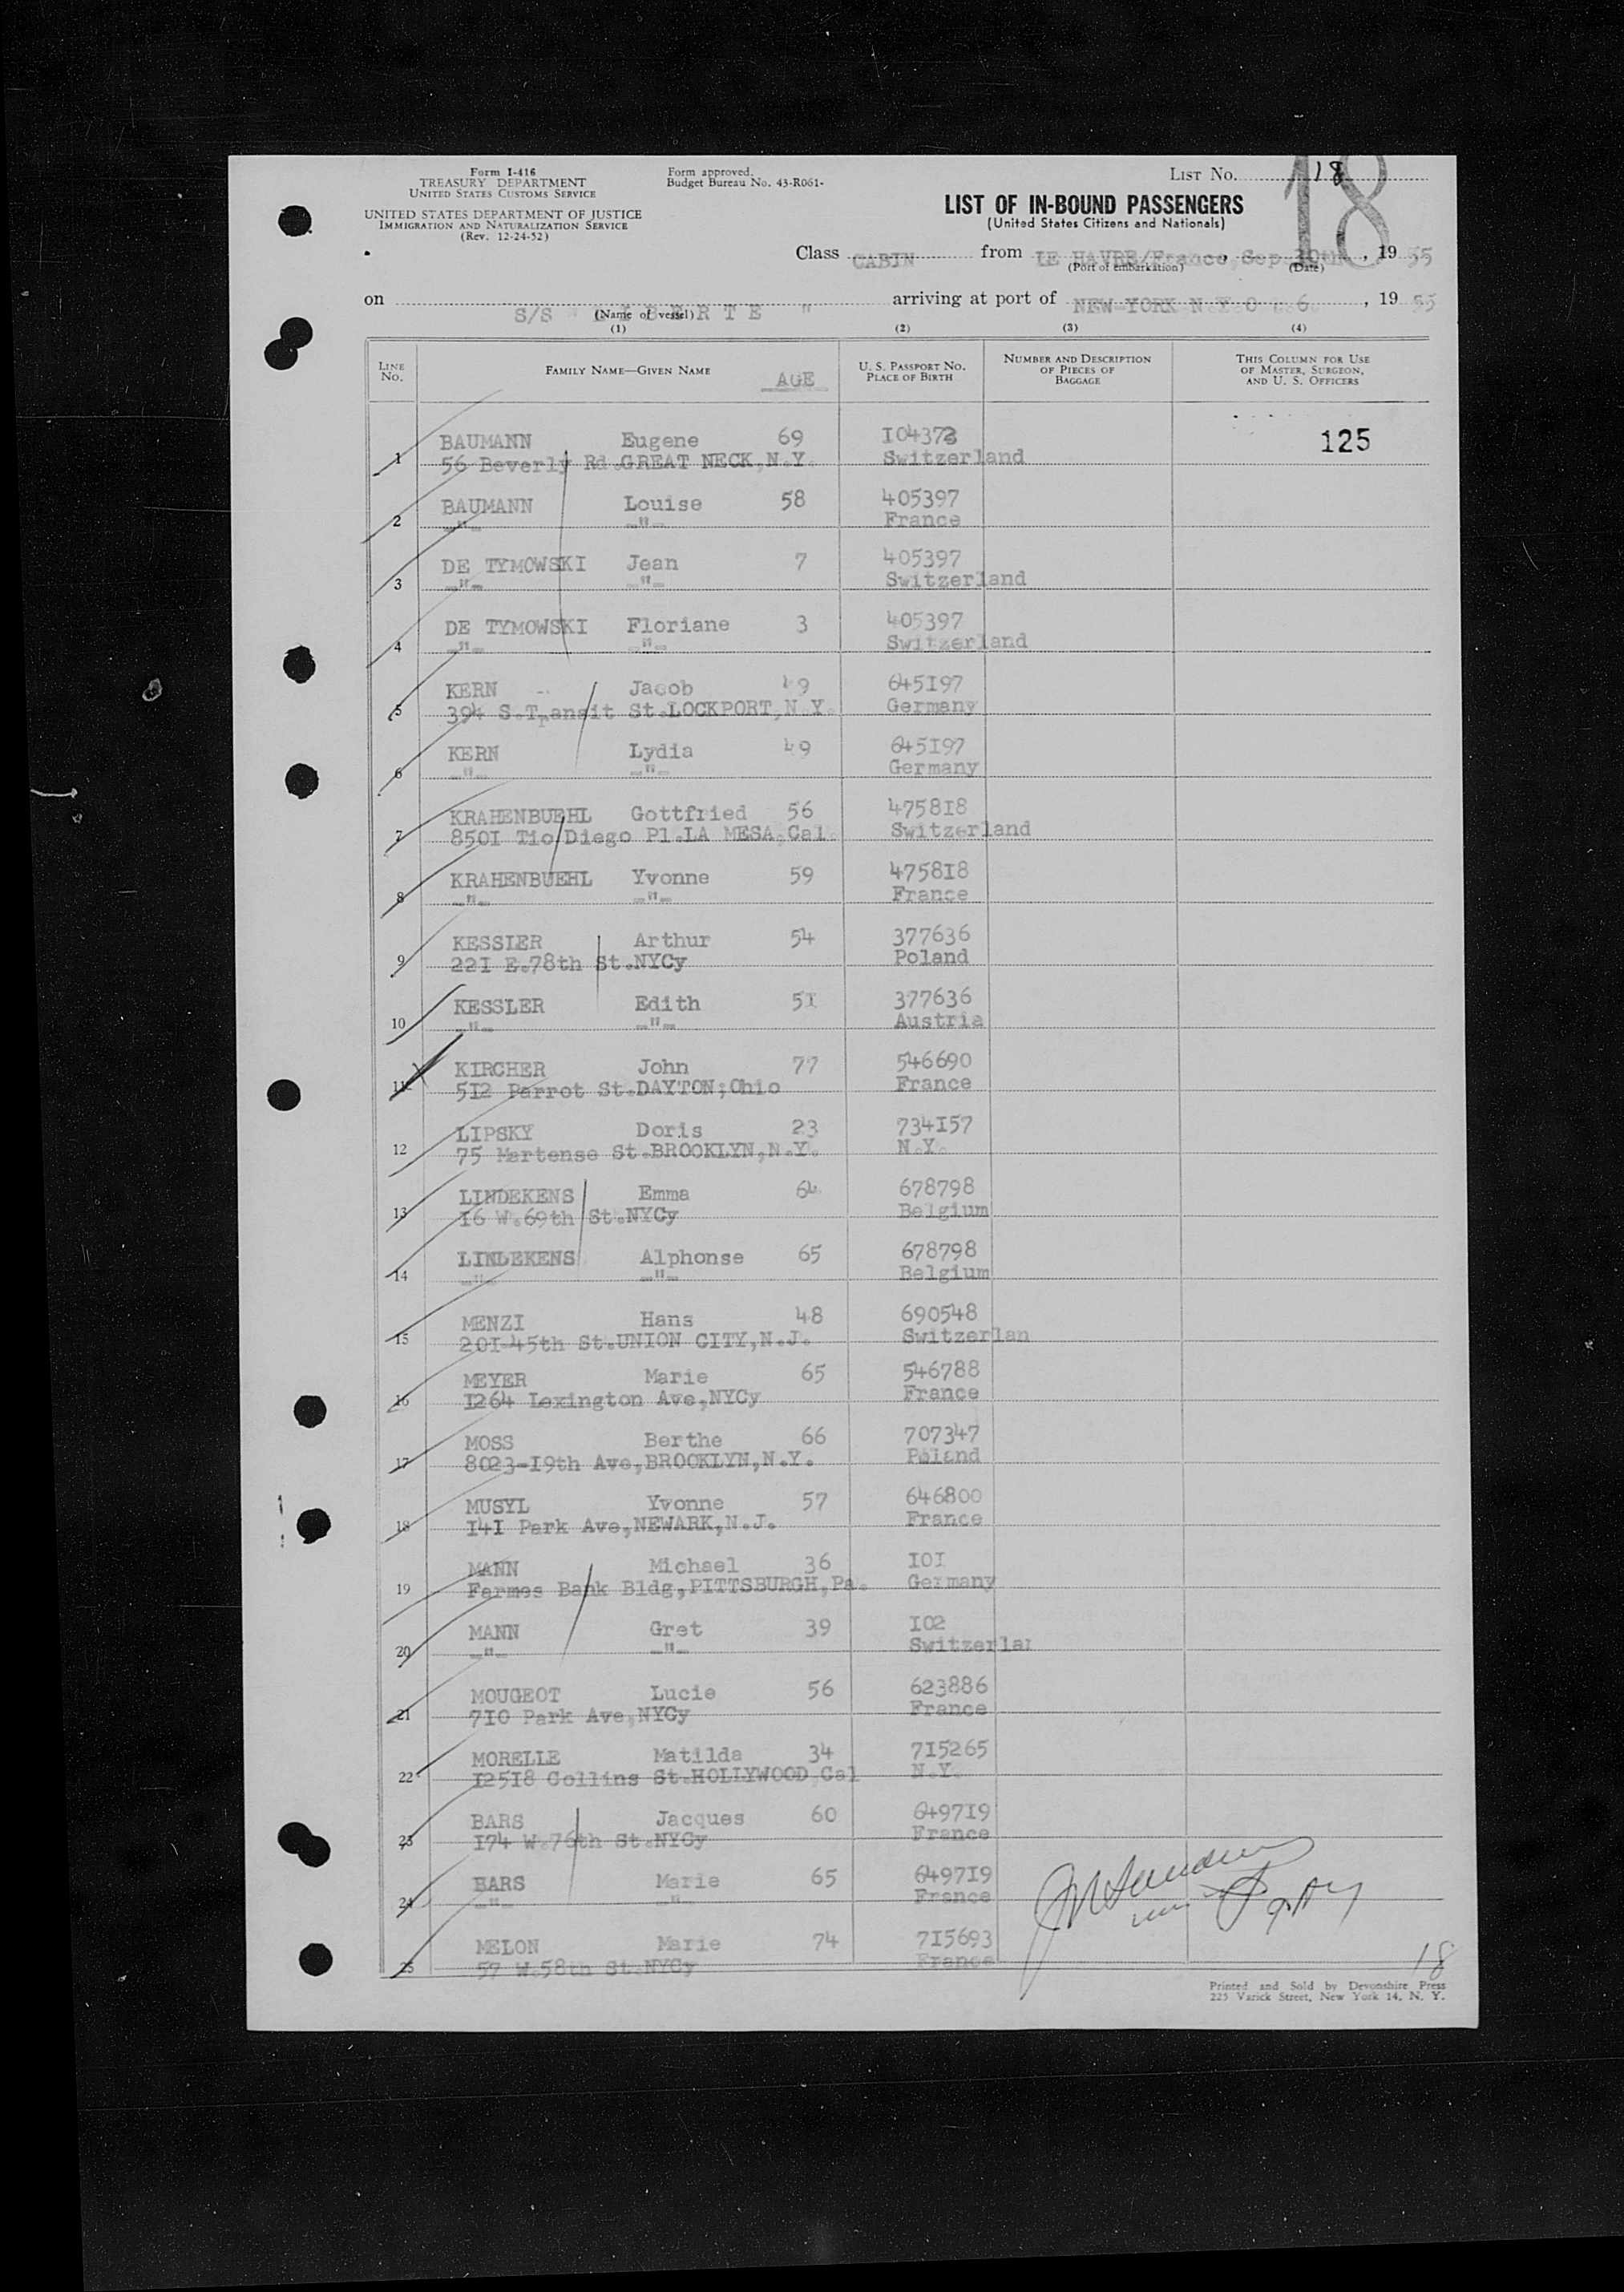 Form I-416
TREASURY DEPARTMENT
UNITED STATES CUSTOMS SERVICE
UNITED STATES DEPARTMENT OF JUSTICE
IMMIGRATION AND NATURALIZATION SERVICE
(Rev. 12-24-52)
Form approved.
Budget Bureau No. 43-R061-
LIST NO. 18
18
LIST OF IN-BOUND PASSENGERS
(United States Citizens and Nationals)
Class CABIN from LE HAVRE/France, Sep 30th, 19 55
(Port of embarkation) (Date)
on S/S " L I B E R T E " arriving at port of NEW-YORK N.Y. 6, 19 55
(Name of vessel)
(1) (2) (3) (4)
LINE NO. FAMILY NAME—GIVEN NAME AGE U. S. PASSPORT NO. PLACE OF BIRTH NUMBER AND DESCRIPTION OF PIECES OF BAGGAGE THIS COLUMN FOR USE OF MASTER, SURGEON, AND U. S. OFFICERS
BAUMANN Eugene 69 I04373 125
1 56 Beverly Rd.GREAT NECK,N.Y. Switzerland
BAUMANN Louise 58 405397
2 -"- -"- France
DE TYMOWSKI Jean 7 405397
3 -"- -"- Switzerland
DE TYMOWSKI Floriane 3 405397
4 -"- -"- Switzerland
KERN Jacob 49 645I97
5 394 S.Transit St.LOCKPORT,N.Y. Germany
KERN Lydia 49 645I97
6 -"- -"- Germany
KRAHENBUEHL Gottfried 56 4758I8
7 850I Tio Diego Pl.LA MESA,Cal. Switzerland
KRAHENBUEHL Yvonne 59 4758I8
8 -"- -"- France
KESSIER Arthur 54 377636
9 22I E.78th St.NYCy Poland
KESSLER Edith 5I 377636
10 -"- -"- Austria
KIRCHER John 77 546690
11 5I2 Parrot St.DAYTON;Ohio France
LIPSKY Doris 23 734I57
12 75 Martense St.BROOKLYN,N.Y. N.Y.
LINDEKENS Emma 64 678798
13 I6 W.69th St.NYCy Belgium
LINDEKENS Alphonse 65 678798
14 -"- -"- Belgium
MENZI Hans 48 690548
15 20I-45th St.UNION CITY,N.J. Switzerlan
MEYER Marie 65 546788
16 I264 Lexington Ave,NYCy France
MOSS Berthe 66 707347
17 8023-I9th Ave,BROOKLYN,N.Y. Poland
MUSYL Yvonne 57 646800
18 I4I Park Ave,NEWARK,N.J. France
MANN Michael 36 I0I
19 Farmes Bank Bldg,PITTSBURGH,Pa. Germany
MANN Gret 39 I02
20 -"- -"- Switzerlan
MOUGEOT Lucie 56 623886
21 7I0 Park Ave,NYCy France
MORELLE Matilda 34 7I5265
22 I25I8 Collins St.HOLLYWOOD,Cal N.Y.
BARS Jacques 60 6497I9
23 I74 W.76th St.NYCy France
BARS Marie 65 6497I9
24 -"- -"- France
MELON Marie 74 7I5693
25 57 W.58th St.NYCy France
18
Printed and Sold by Devonshire Press
225 Varick Street, New York 14, N. Y.